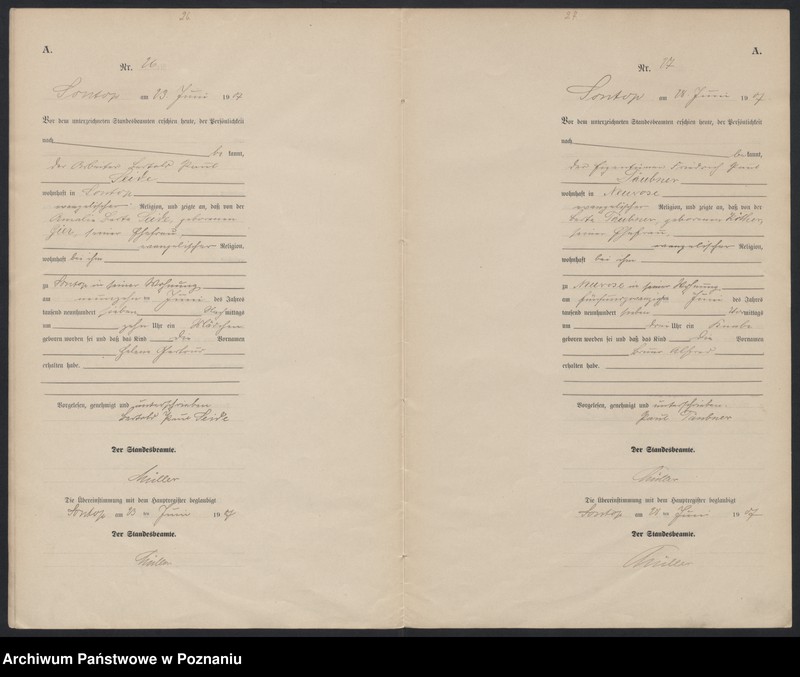 26
A.
Nr. 26
Sontop am 23 Juni 1907
Vor dem unterzeichneten Standesbeamten erschien heute, der Persönlichkeit
nach
be kannt,
der Arbeiter Bertold Paul
wohnhaft in Sontop
evangelischer Religion, und zeigte an, daß von der
geborenen
seiner Ehefrau
evangelischer Religion,
wohnhaft bei ihm
zu Sontop in seiner Wohnung
am neunzehn Juni des Jahres
tausend neunhundert sieben Nachmittags
um zehn Uhr ein Mädchen
geboren worden sei und daß das Kind die Vornamen
Helene
erhalten habe.
Vorgelesen, genehmigt und unterschrieben
Bertold Paul
Der Standesbeamte.
Müller
Die Übereinstimmung mit dem Hauptregister beglaubigt
Sontop am 23 ten Juni 1907
Der Standesbeamte.
Müller
27
A.
Nr. 27
Sontop am 28 Juni 1907
Vor dem unterzeichneten Standesbeamten erschien heute, der Persönlichkeit
nach
be kannt,
der Eigentümer Friedrich Paul
Täubner
wohnhaft in Neurose
evangelischer Religion, und zeigte an, daß von der
Täubner, geborenen
seiner Ehefrau
evangelischer Religion,
wohnhaft bei ihm
zu Neurose in seiner Wohnung
am fünfundzwanzigsten Juni des Jahres
tausend neunhundert sieben Vormittags
um drei Uhr ein Knabe
geboren worden sei und daß das Kind die Vornamen
Alfred
erhalten habe.
Vorgelesen, genehmigt und unterschrieben
Paul Täubner
Der Standesbeamte.
Müller
Die Übereinstimmung mit dem Hauptregister beglaubigt
Sontop am 28 ten Juni 1907
Der Standesbeamte.
Müller
Archiwum Państwowe w Poznaniu